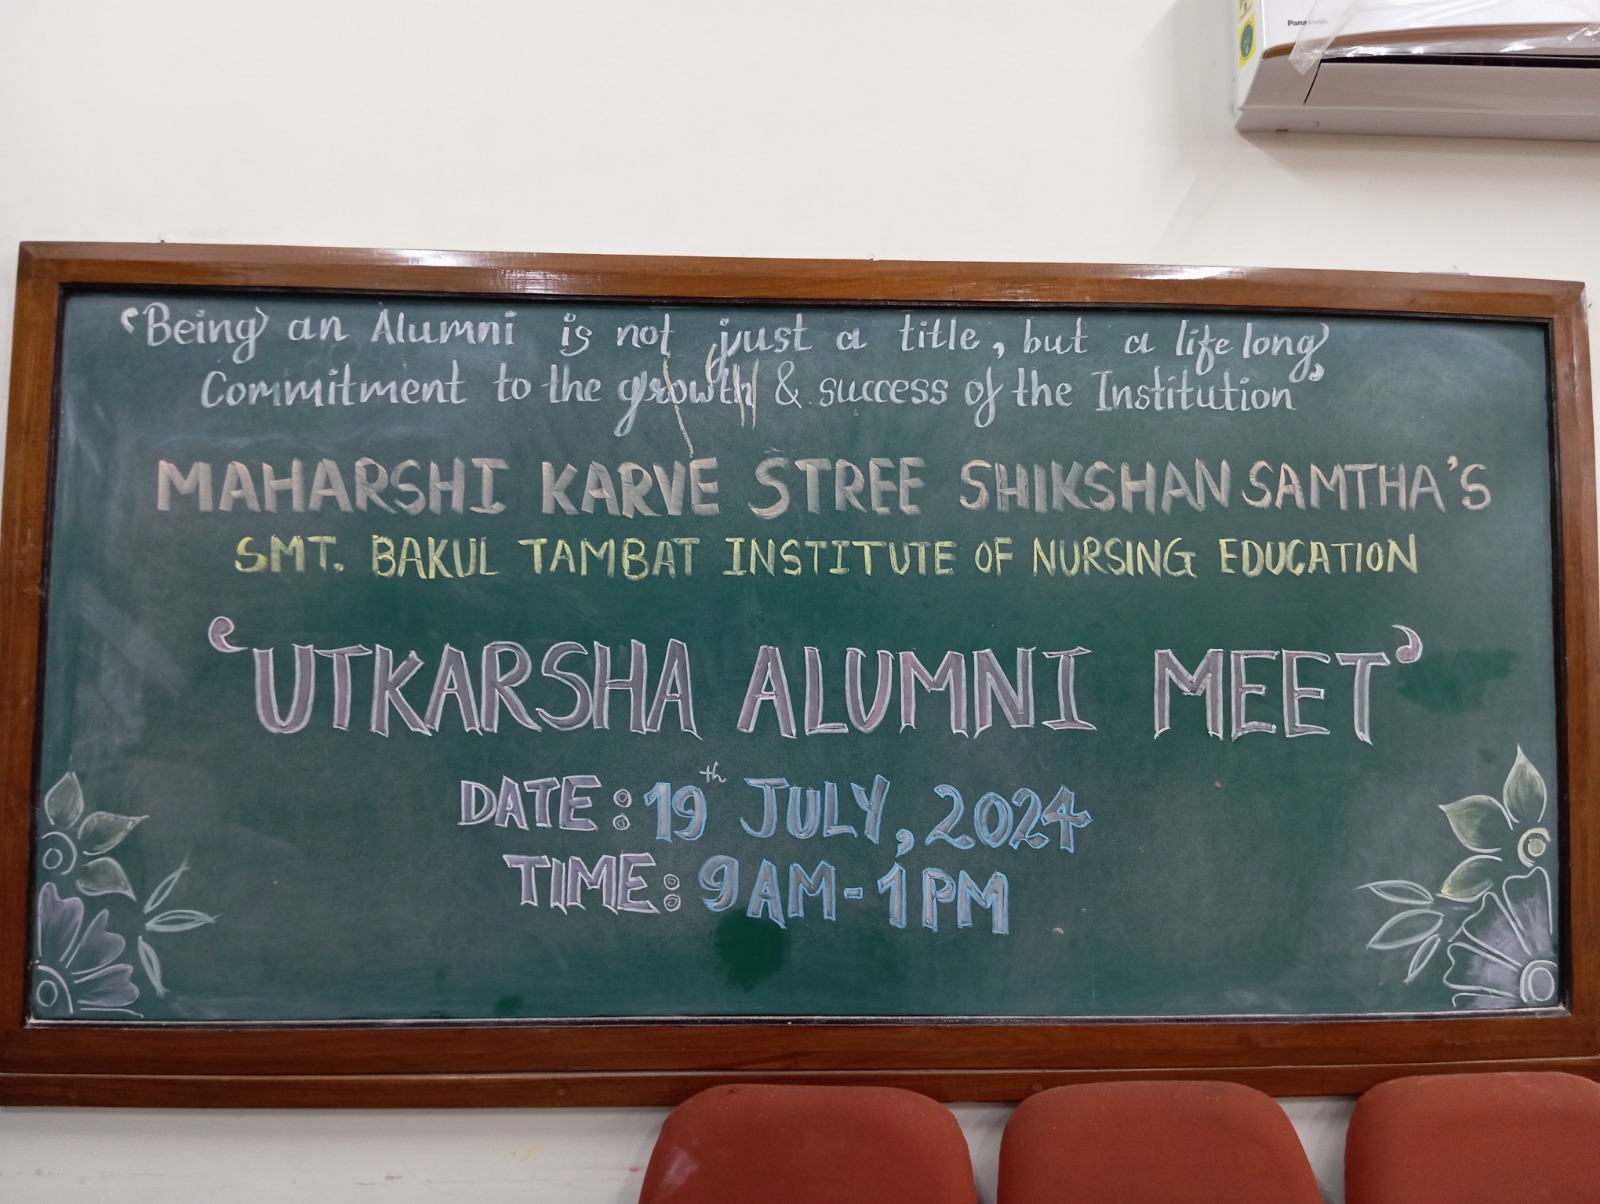 Panasonic
"Being an Alumni is not just a title, but a life long
Commitment to the growth & success of the Institution"
MAHARSHI KARVE STREE SHIKSHAN SAMTHA'S
SMT. BAKUL TAMBAT INSTITUTE OF NURSING EDUCATION
'UTKARSHA ALUMNI MEET'
DATE: 19th JULY, 2024
TIME: 9AM-1PM